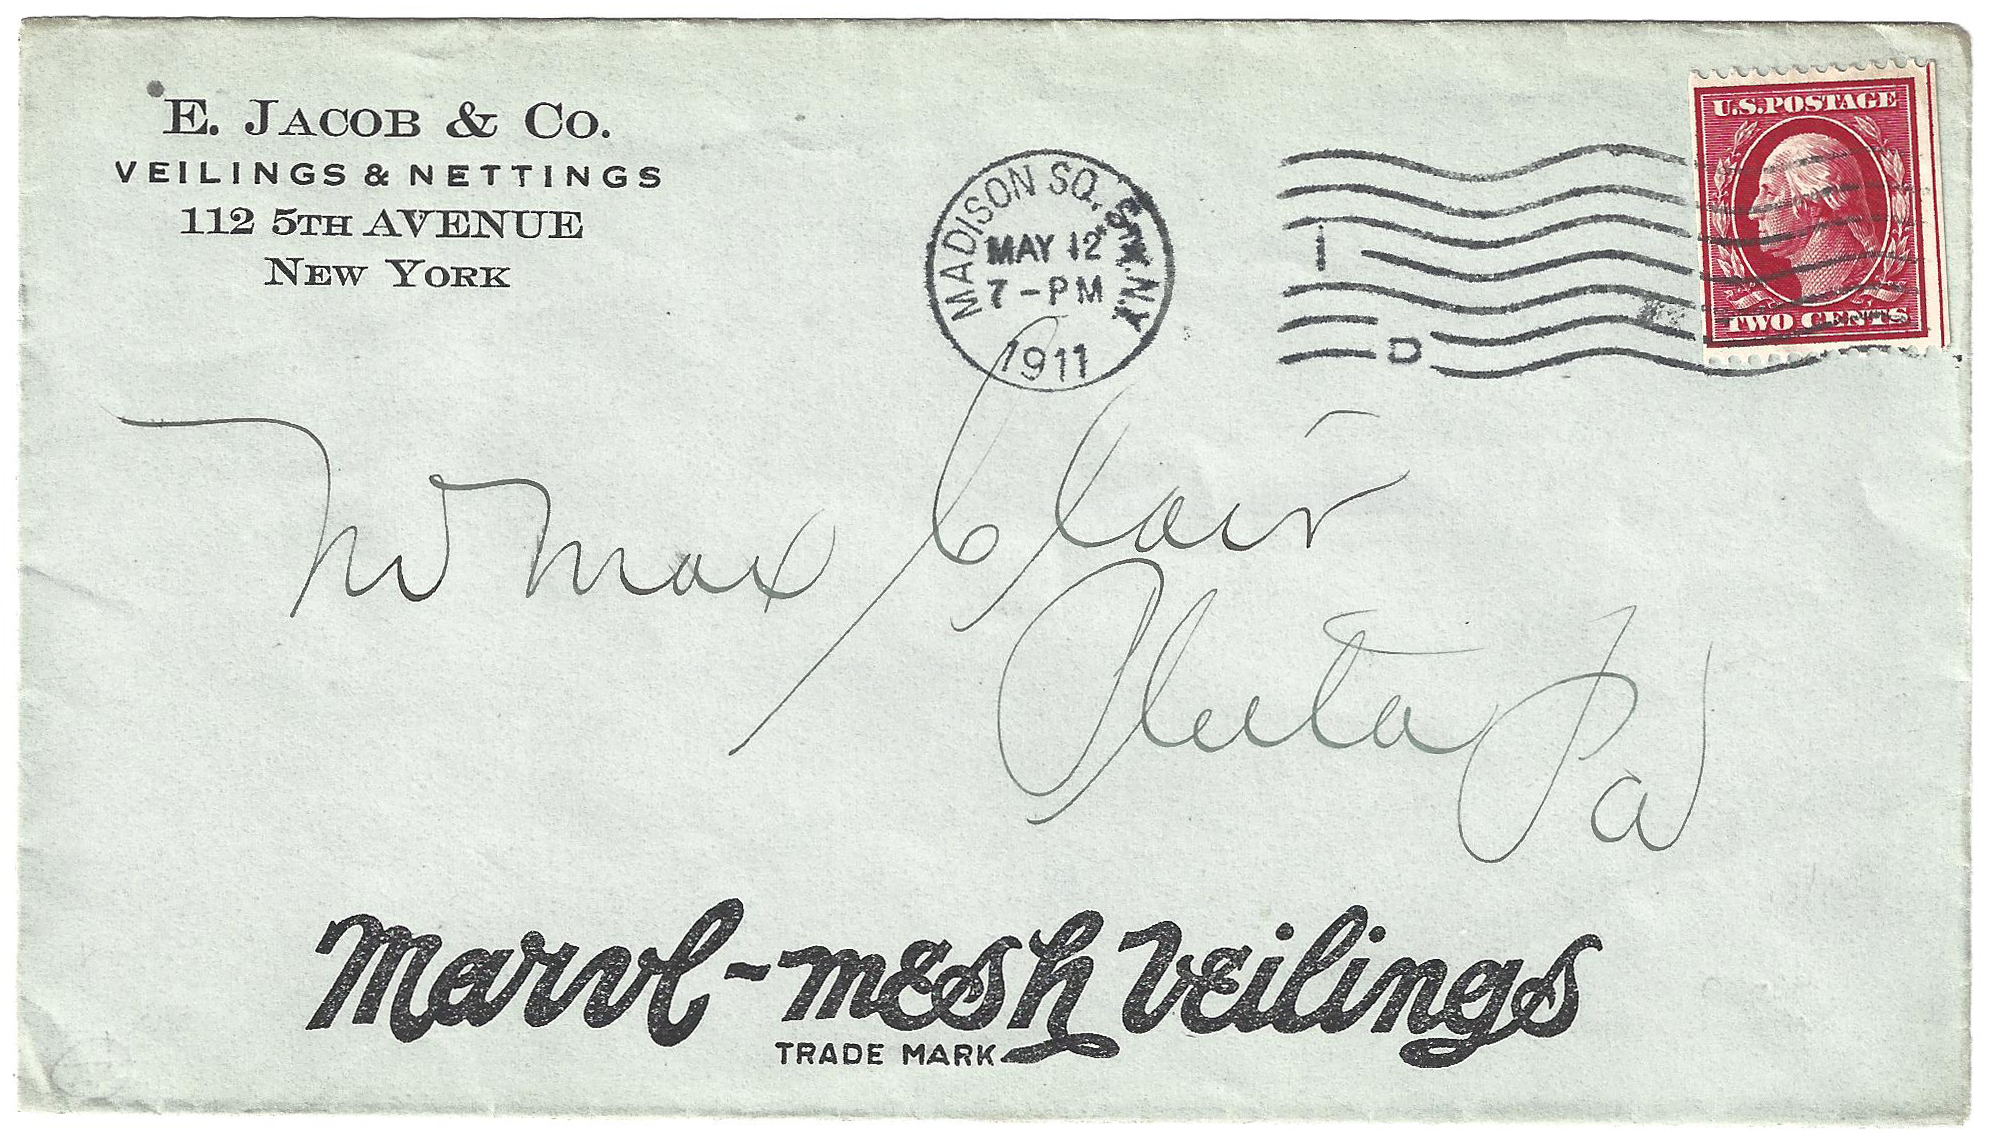 E. JACOB & CO.
VEILINGS & NETTINGS
112 5TH AVENUE
NEW YORK
MADISON SQ. STA. N.Y.
MAY 12
7-PM
1911
1
D
U.S. POSTAGE
TWO CENTS
Max Clair
Pa
Marvl-mesh Veilings
TRADE MARK